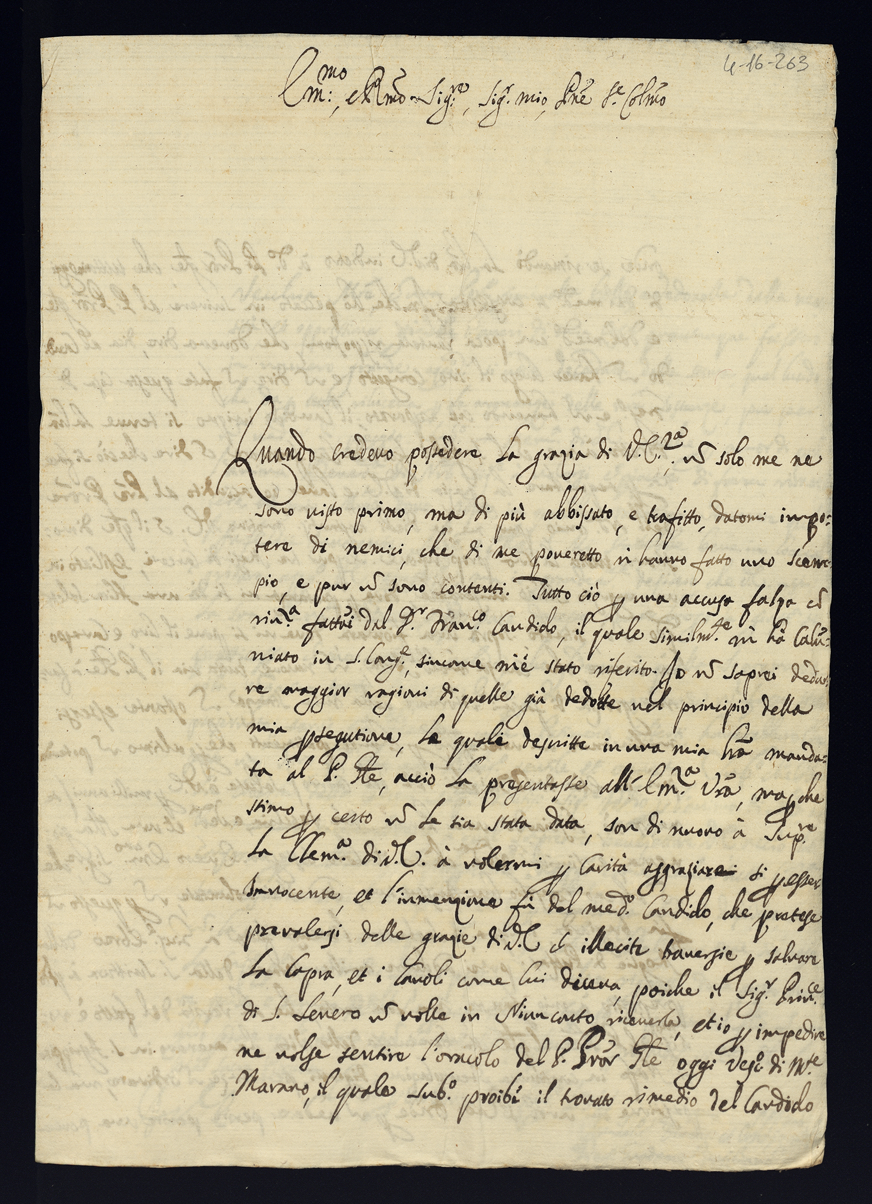 4-16-263
Ill.mo: e R.mo Sig.re, Sig.r mio, P.ne Se. Col.mo
Quando credevo possedere la grazia di V.E. R.ma: nõ solo me ne
sono visto primo, ma di più abbissato, e trafitto, datomi in po:
tere di nemici, che di me poveretto n'hanno fatto uno scem:
pio, e pur nõ sono contenti. Tutto ciò ꝑ una accusa falza cõ
fattami dal D.r Fran.co Candido, il quale similm.te m'hà Calũ:
niato in S. Cong.e, sincome m'è stato riferito. Io nõ saprei dedur:
re maggior ragioni di quelle già dedotte nel principio della
mia ꝑsegutione, le quali descritte in una mia lrã manda:
ta al P. Gñle, acciò la presentasse all' Ill.ma Vrã, ma ꝑche
stimo ꝑ certo nõ le sia stata data, son di nuovo à Sup.re
la Clem.a di V.E. à volermi ꝑ carità aggraziare si ꝑ esser
Innocente, et l'inmenzione fù del med.o Candido, che pretese
prevalersi delle grazie di V.E. cõ illecite traversie ꝑ salvare
la Capra, et i Cavoli come lui diceva, poiche il Sig.r Prin.ce
di S. Severo nõ volle in Niun conto riceverla, et io ꝑ impedire
ne volse sentire l'oracolo del P. Prõr Gñle oggi Vesc.o di M.te
Marano, il quale sub.o proibì il trovato rimedio del Candido